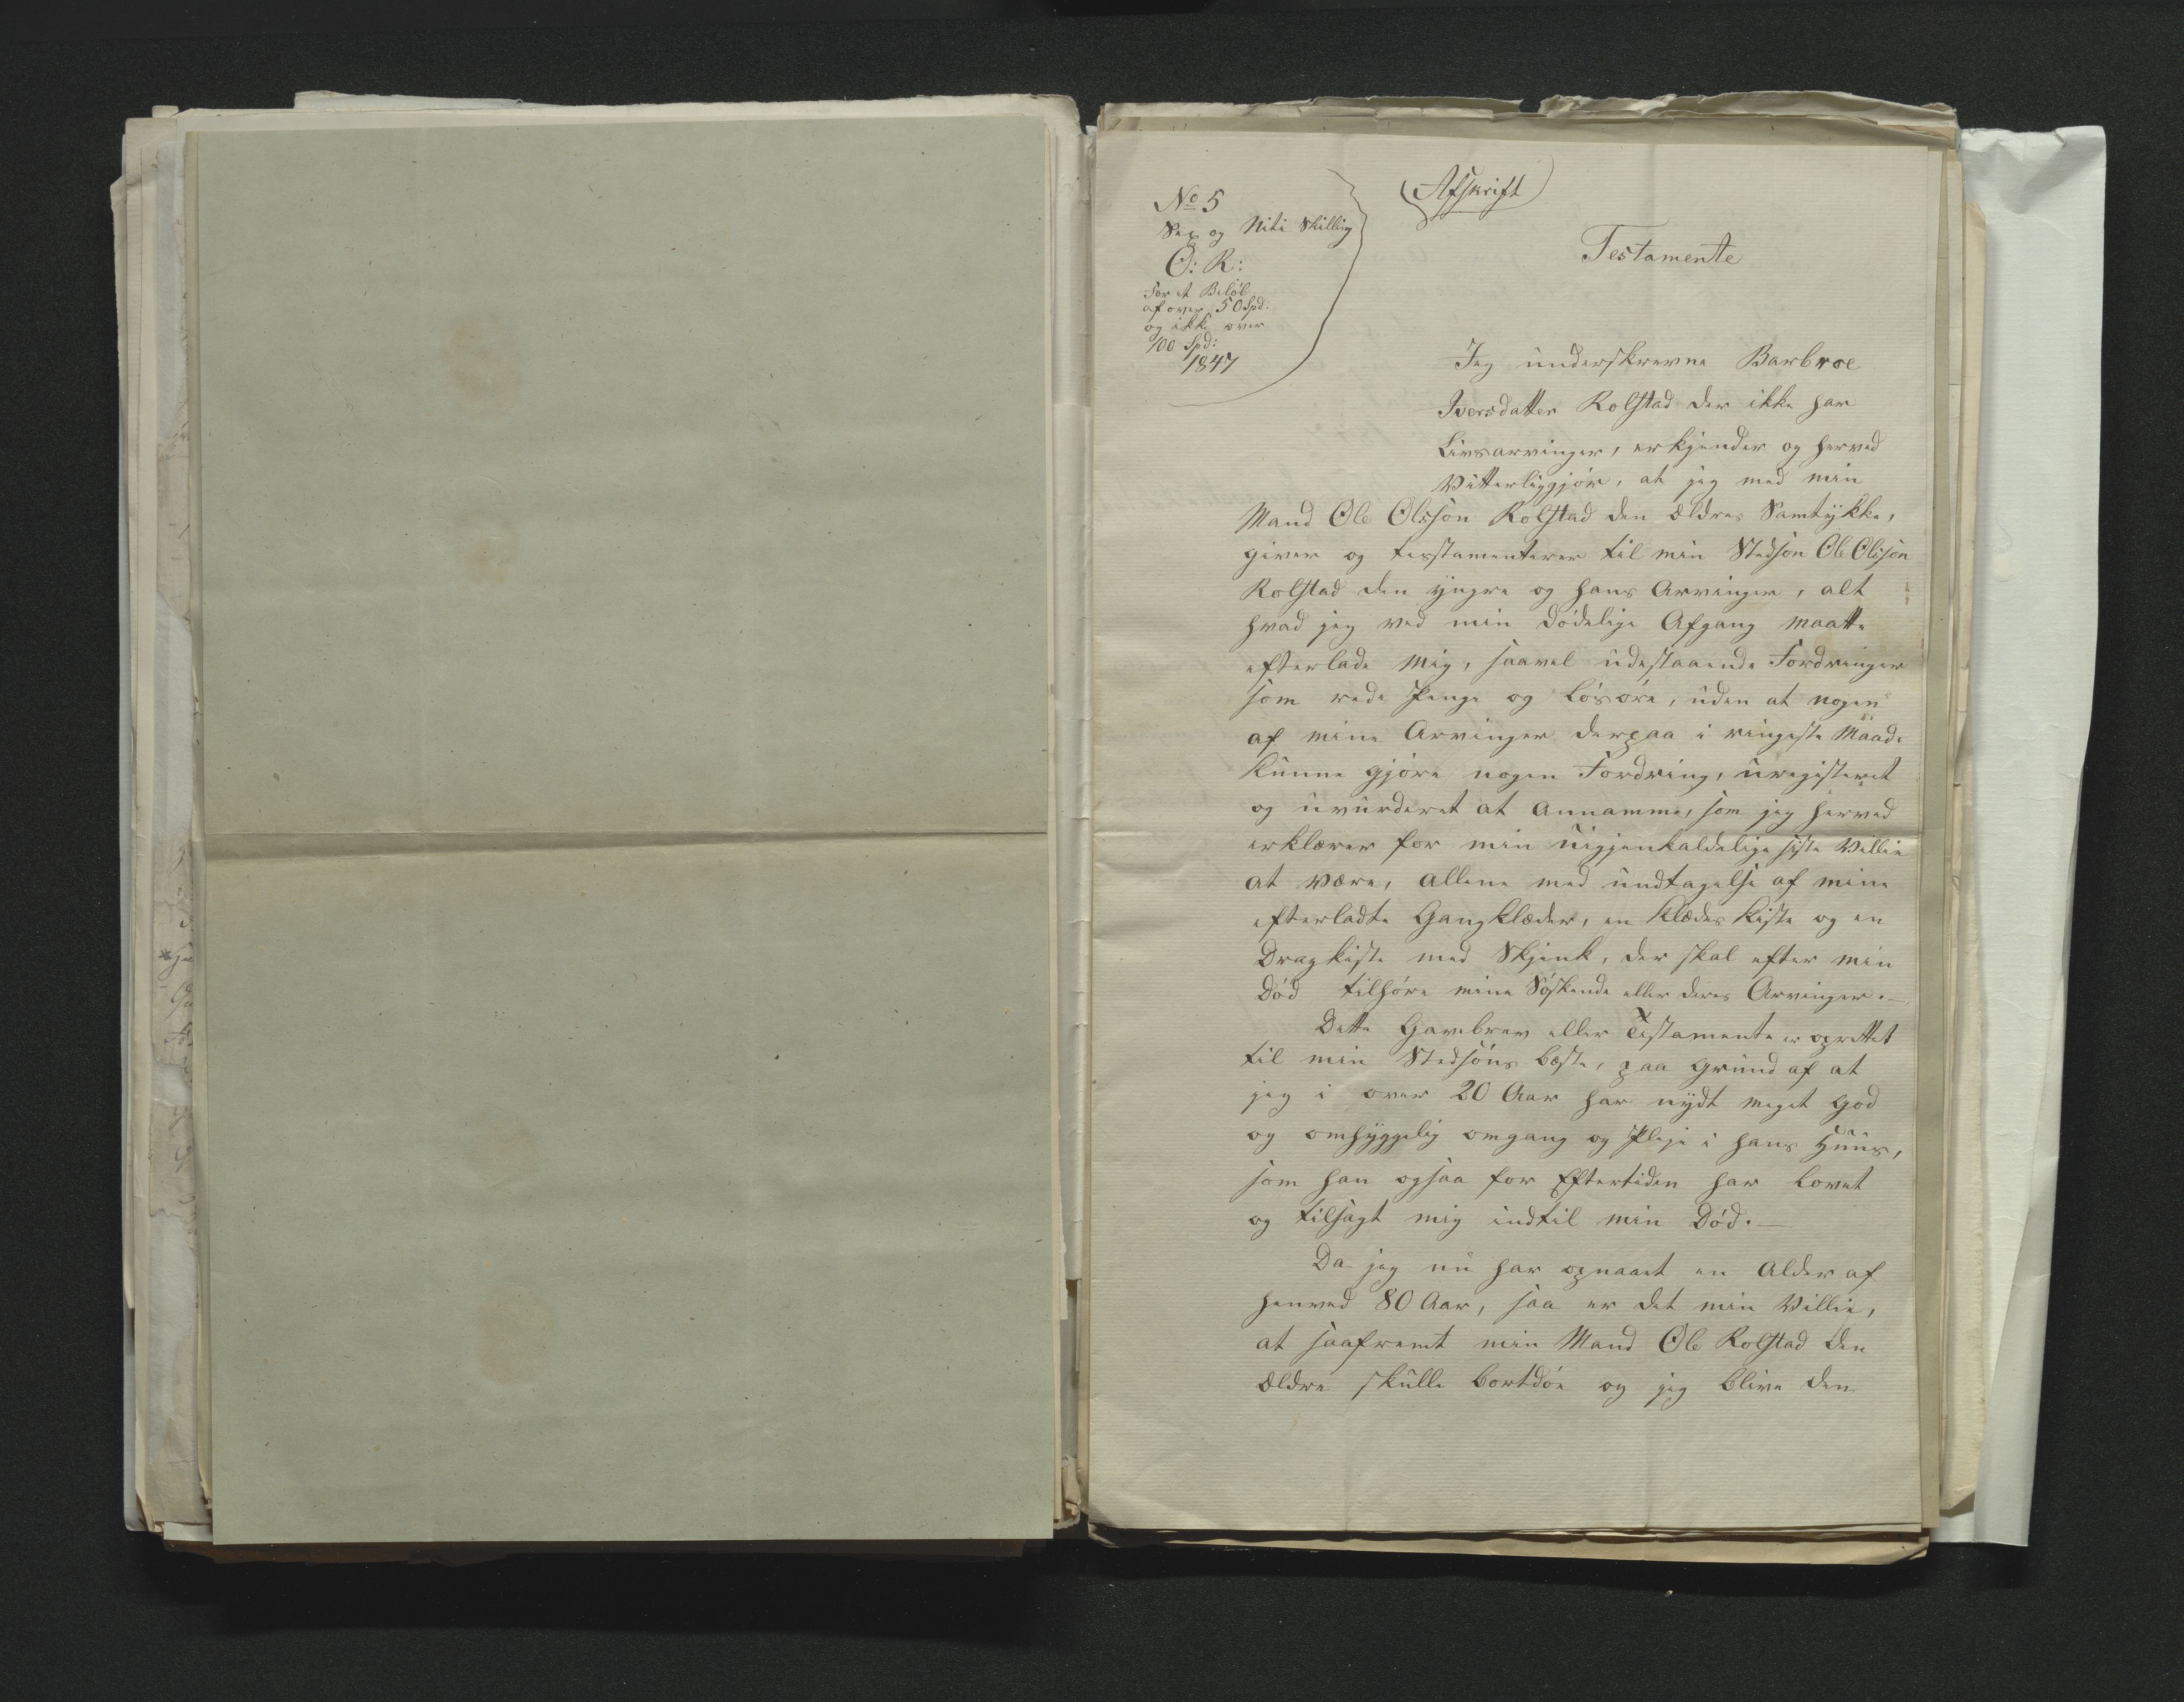 No 5
Sex og Niti Skilling
O: R:
For et Beløb
af over 50 Spd:
og ikke over
100 Spd:
1847
(Afskrift)
Testamente
Jeg underskrevne Barbroe
Iversdatter Rolstad der ikke har
Livsarvinger, erkjender og herved
vitterliggjør, at jeg med min
Mand Ole Olsson Rolstad den ældres Samtykke,
giver og testamenterer til min Stedsøn Ole Olsson
Rolstad den yngre og hans Arvinger, alt
hvad jeg ved min dødelige Afgang maatte
efterlade mig, saavel udestaaende Fordringer
som rede Penge og Løsøre, uden at nogen
af mine Arvinger derpaa i ringeste Maade
kunne gjøre nogen Fordring, uregisteret
og uvurderet at annamme, som jeg herved
erklærer for min uigjenkaldelige siste Villie
at være, allene med undtagelse af mine
efterladte Gangklæder, en Klædes Kiste og en
Dragkiste med Skjenk, der skal efter min
Død tilhøre mine Søskende eller deres Arvinger. —
Dette Gavebrev eller Testamente er oprettet
til min Stedsøns bæste, paa grund af at
jeg i over 20 Aar har nydt meget god
og omhyggelig omgang og Pleje i hans Huus,
som han ogsaa for Eftertiden har lovet
og tilsagt mig indtil min Død. —
Da jeg nu har opnaaet en Alder af
henved 80 Aar, saa er det min Villie,
at saafremt min Mand Ole Rolstad den
ældre skulle bortdøe og jeg blive den